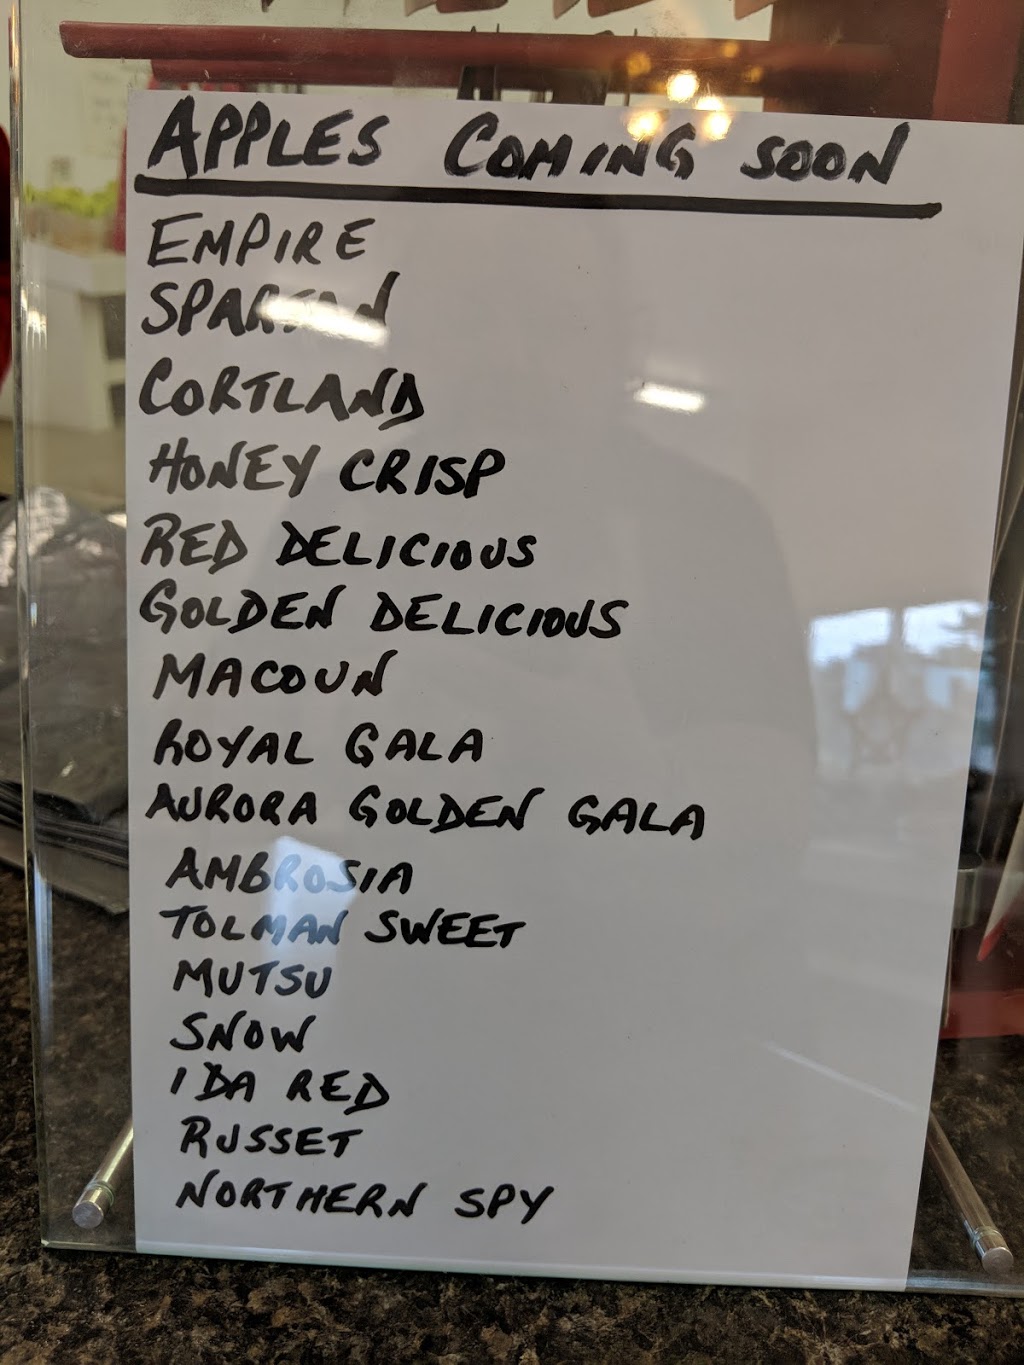 APPLES COMING SOON
EMPIRE
SPARTAN
CORTLAND
HONEY CRISP
RED DELICIOUS
GOLDEN DELICIOUS
MACOUN
ROYAL GALA
AURORA GOLDEN GALA
AMBROSIA
TOLMAN SWEET
MUTSU
SNOW
IDA RED
RUSSET
NORTHERN SPY